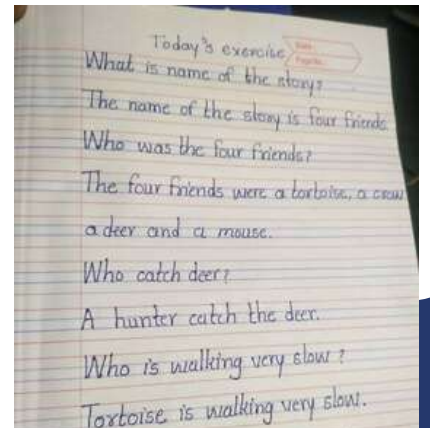 Today's exercise
What is name of the story?
The name of the story is four friends
Who was the four friends?
The four friends were a tortoise, a crow
a deer and a mouse.
Who catch deer?
A hunter catch the deer.
Who is walking very slow?
Tortoise is walking very slow.